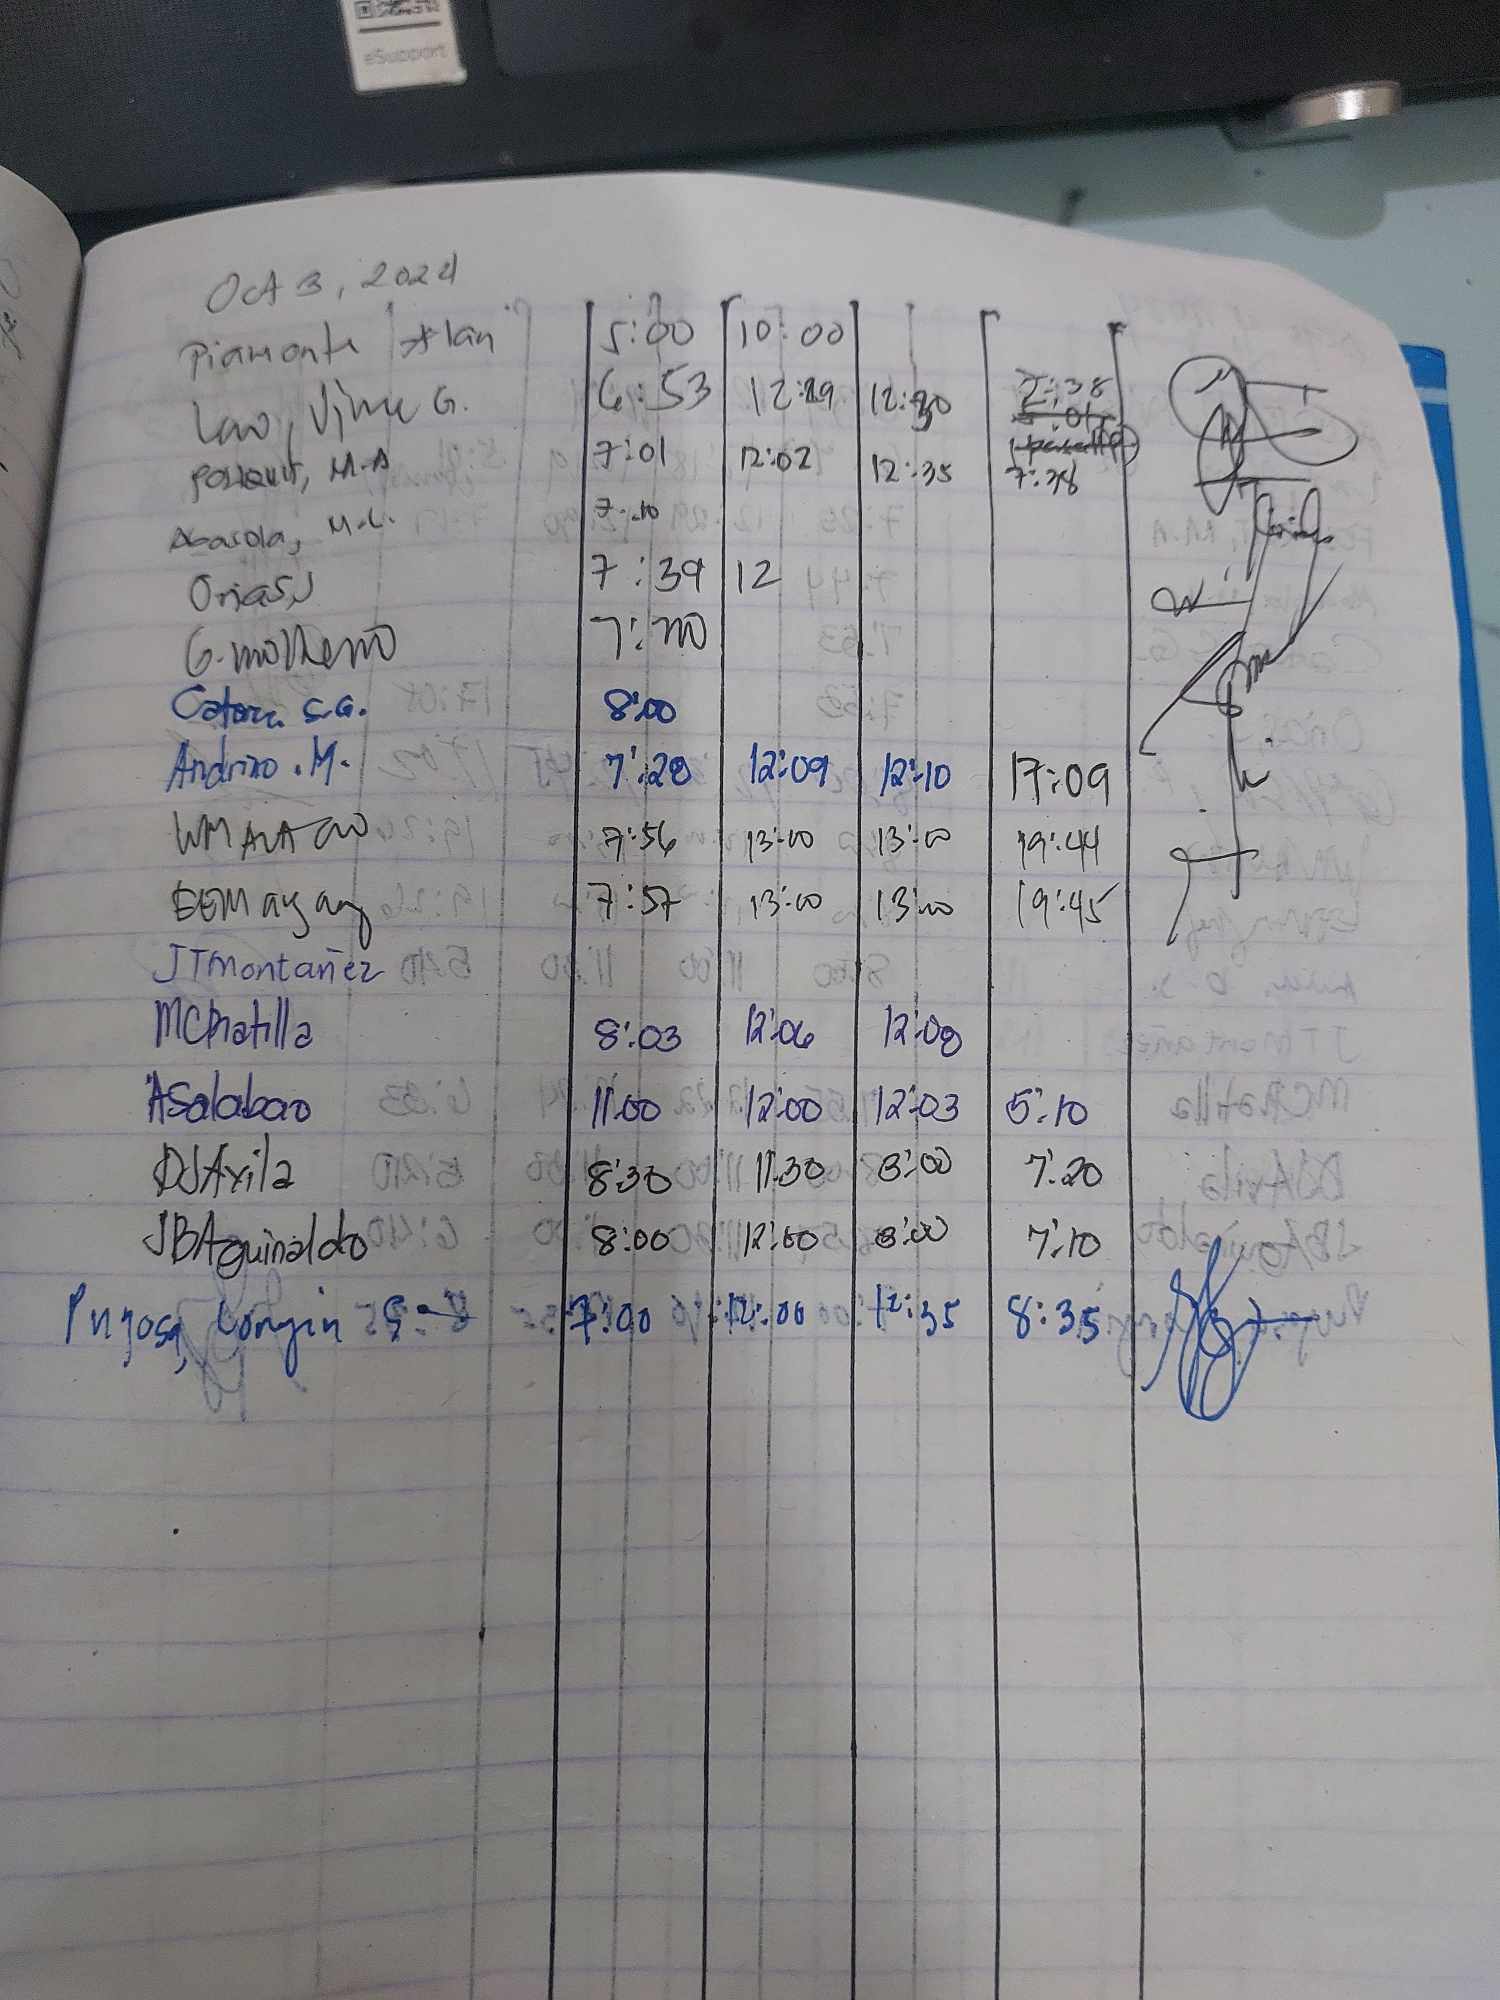 eSupport
Oct 3, 2024
Piamonte Alan 5:00 10:00
Lao, G. 6:53 12:29 12:30 7:38
M.A 7:01 12:02 12:35 7:38
Abasola, M.L. 7:10
Orias, J 7:39 12
G. 7:
S.G. 8:00
Andrino . M. 7:28 12:09 12:10 17:09
7:56 13:00 13:00 19:44
EEMayang 7:57 13:00 13:00 19:45
JTMontañez
MCRatilla 8:03 12:06 12:08
ASalabao 11:00 12:00 12:03 5:10
DJAvila 8:30 11:30 3:00 7:20
JBAguinaldo 8:00 12:00 3:00 7:10
Pugosa, Longin S 7:00 12:00 12:35 8:35